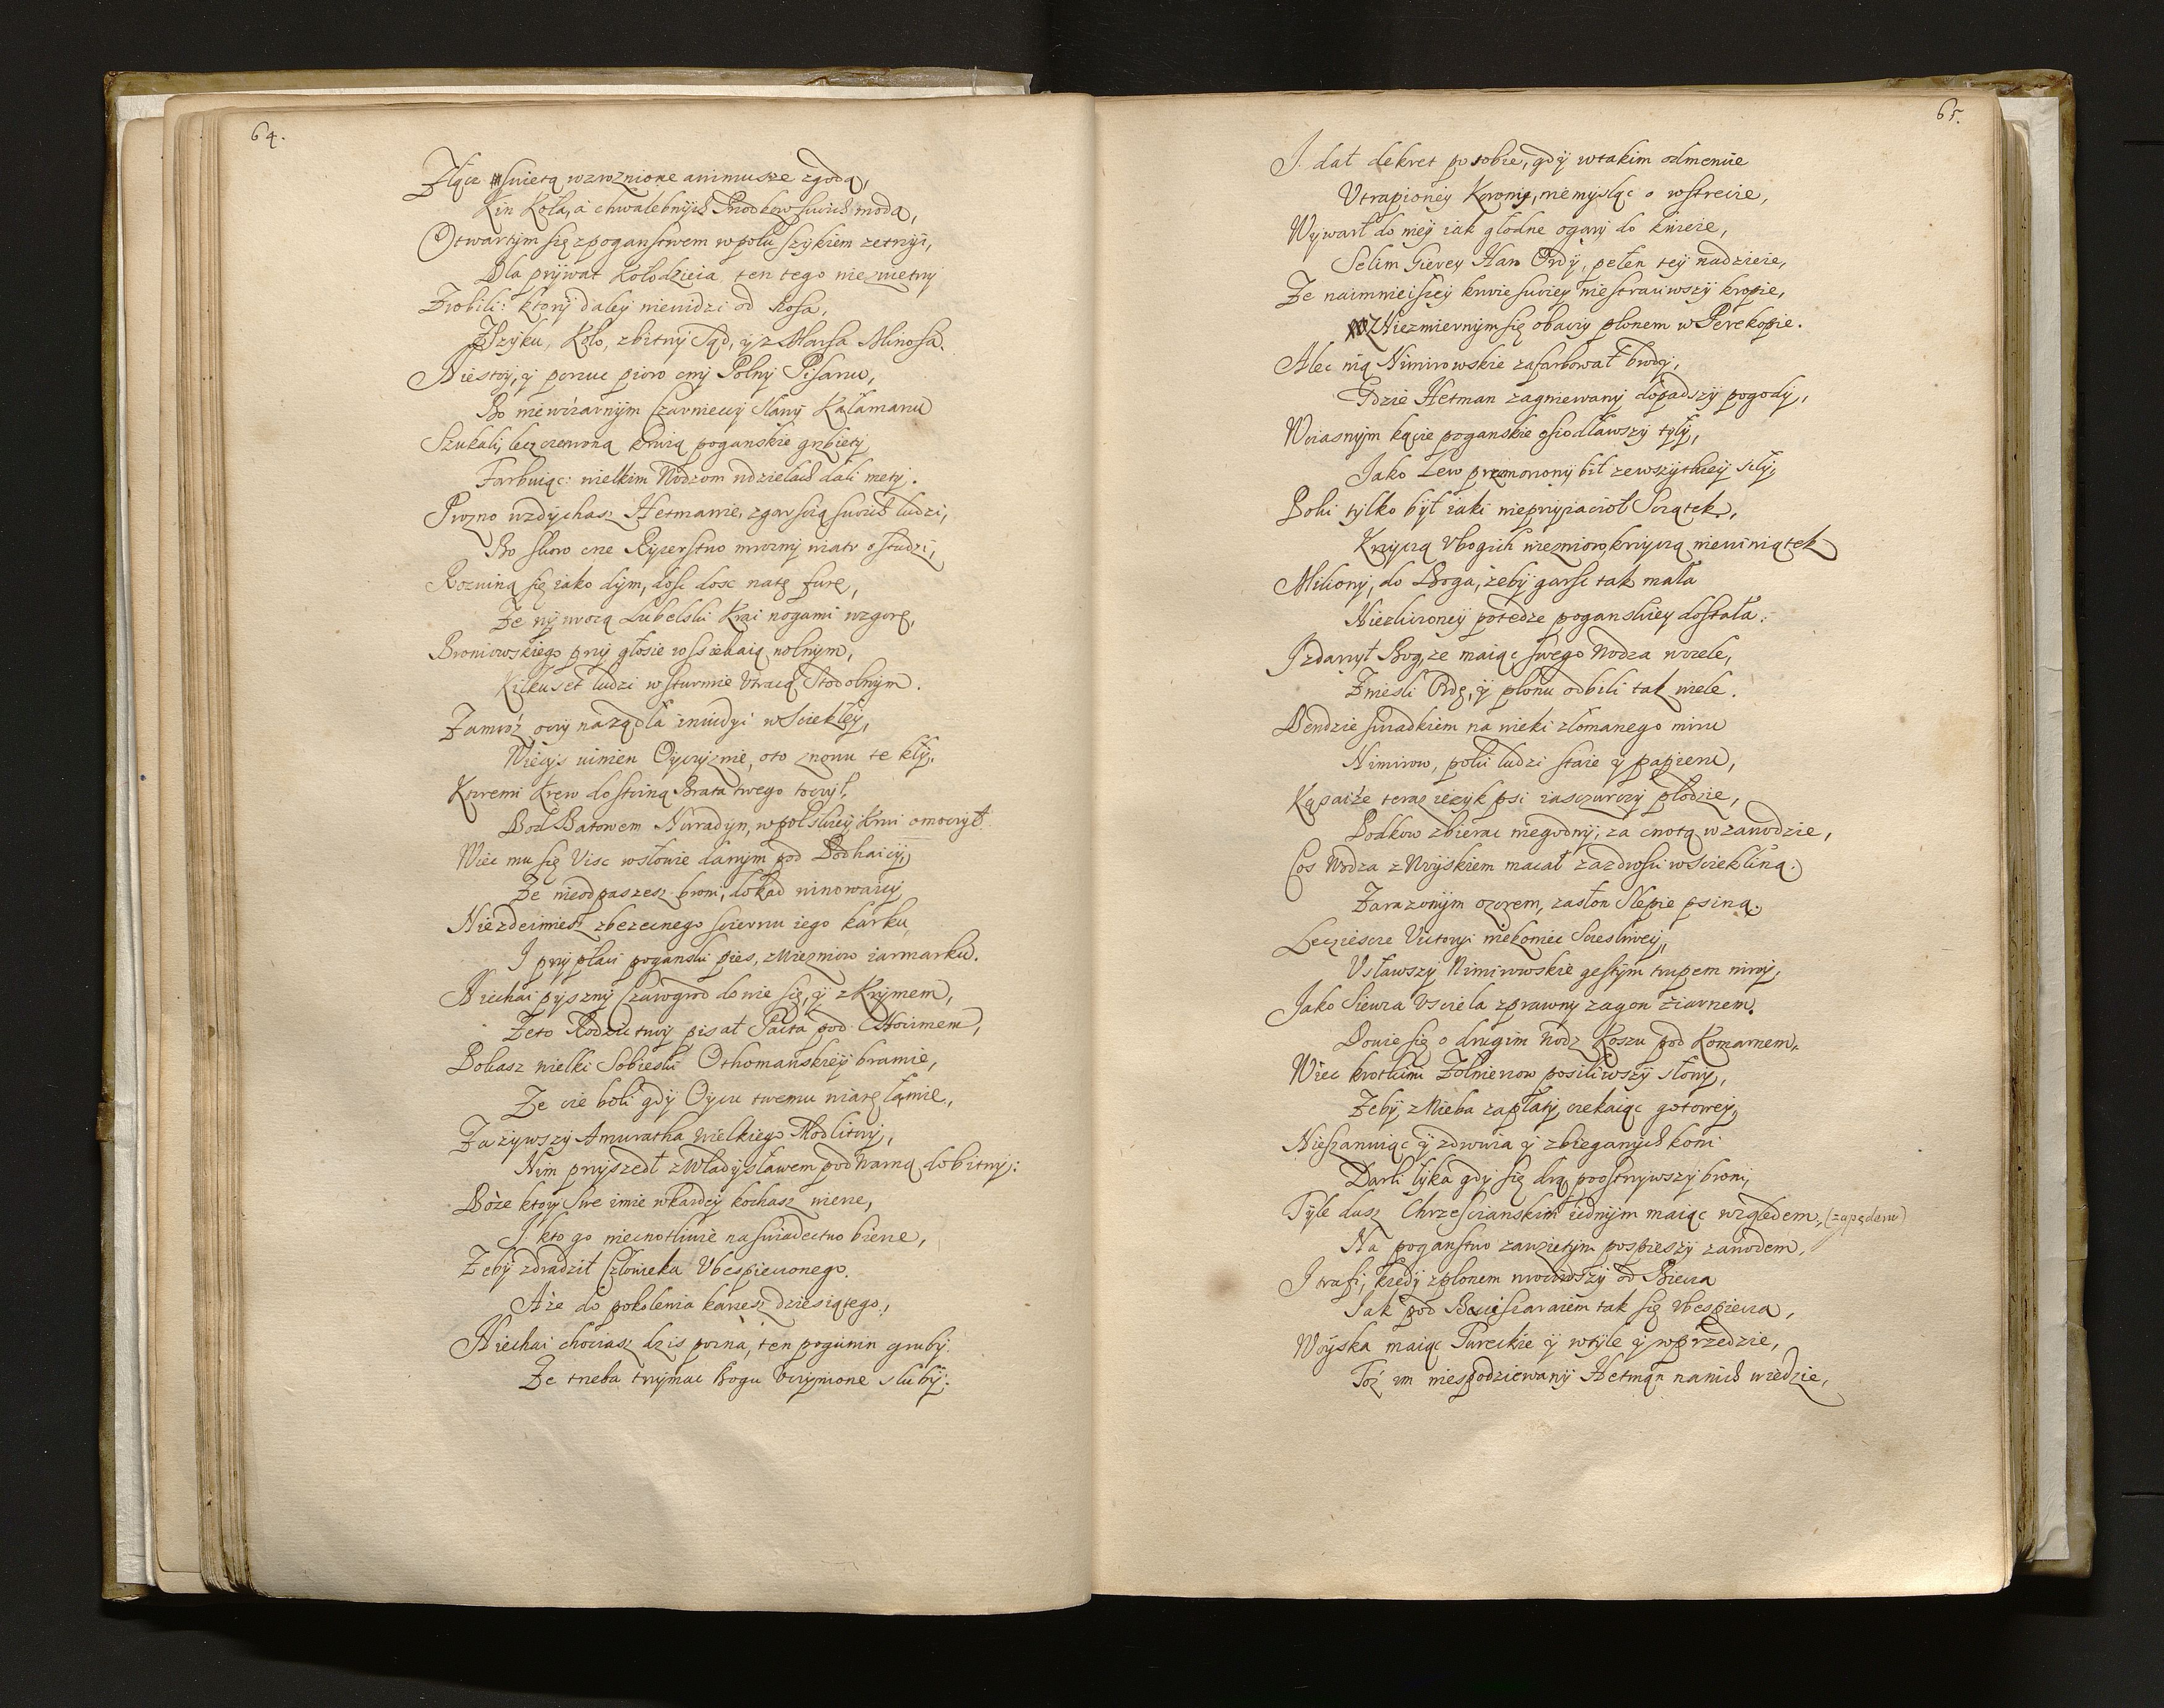 64.
Złącz swietą wzroznione animusze zgodą,
Kin Koła, a chwalebnych Przodkow swich modą,
Otwartym się z poganstwem w polu szykiem zetrzyi,
Dla prywat Kołodzieia ten tego nie zwietrzy
Zrobili: ktory daley niewidzi od Nosa,
Z Szyku, Koło, z bitwy Sąd, y z Marsa Minosa.
Niestoy, y porzuc pioro cny Polny Pisarzu,
Bo niewczarnym Czarniecey sławy Kałamarzu
Szukali, lecz czerwoną krwią poganskie grzbiety
Farbuiąc: wielkim Wodzom w dzielach dali mety.
Prozno wzdychasz Hetmanie, z garscią swoich ludzi,
Bo skoro cne Ryzerstwo mrozny wiatr ostudzi,
Rozwiną się iako dym, dosc dosc natę furę,
Ze wywrocą Lubelski Krai nogami wzgorę,
Broniowskiego przy głosie wsciekaią wolnym,
Kilkuset ludzi w szturmie Utracą Stodolnym.
Zamroz oczy na żądła inwidyi wsciekłey,
Więcys winien Oyczyznie, oto znowu te kły.
Ktoremi Krew dostoiną Brata twego toczył,
Pod Batowem Nuradyn, w polskiey krwi omoczył.
Wiec mu się Uisc w słowie danym pod Podhaicy,
Ze nieodpaszesz broni, dokąd winowaicy
Niezdeimiesz zbezecnego sciervu iego karku,
I przypłaci poganski pies, z Niezmirow iarmarku.
Niechai pyszny Czarogrod dowie się, y z Krymem,
Zeto Rodzic twoy pisał Pacta pod Chocimem,
Pokasz wielki Sobieski Othomanskiey bramie,
Ze cie boli gdy Oycu twemu wiarę łamie,
Zażywszy Amuratha wielkiego Modlitwy,
Nim przyszedł z Władysławem pod Warną do bitwy:
Boże ktory swe imie w każdey kochasz wierze,
I kto go niecnotliwie na swiadectwo bierze,
Zeby zdradził Człowieka Ubespieczonego,
Aże do pokolenia karzesz dziesiątego,
Niechai chociasz dzis pozna, ten poganin gruby.
Ze trzeba trzymac Bogu Uczynione sluby.
65.
I. dał dekret po sobie, gdy w takim odmencie
Utrapioney Korony, nie mysląc o wstręcie,
Wywarł do niey iak głodne ogary do knieie,
Selim Gierey Han Ordy, pełen tey nadzieie,
Ze naimnieiszey krwie swoiey nie strawiwszy kropie,
Z Niezmiernym się obaczy plonem w Perekopie.
Alec nią Nimirowskie zafarbował brody,
Gdzie Hetman zagniewany dopadszy pogody,
W ciasnym kącie poganskie osiodławszy tyły,
Jako Lew przemorzony bił ze wszytkiey siły,
Poki tylko był iaki nieprzyiacioł Szczątek,
Krzyczą Ubogich niezmiow, krzyczą niewiniątek
Miliony, do Boga, żeby garsc tak mała
Niezliczoney potedze poganskiey dostała.
I zdarzył Bog, ze maiąc swego Wodza w czele,
Zniesli Ordę, y plonu odbili tak wiele.
Bendzie swiadkiem na wieki złomanego miru
Nimirow, poki ludzi staie y papieru,
Kąsaiże teraz ięzyk psi iasczurczy płodzie,
Podkow zbierac niegodny, za cnotą w zawodzie,
Cos Wodza z Woyskiem macał zazdrosci wscieklina.
Zarazonym ozorem, zasłon slepie psiną.
Lecz ieszcze Victoryi niekoniec Sczesliwey,
Usławszy Nimirowskie gestym trupem niwy,
Jako Siewca Usciela zprawny zagon ziarnem.
Dowie się o drugim Wodz Koszu pod Komarnem.
Wiec krotkimi Zołnierzow posiliwszy słowy,
Zeby z Nieba zapłaty czekaiąc gotowey,
Nieszanuiąc y zdrowia y zbieganych koni
Darli łyka gdy się drą poostrzywszy broni,
Tyle dusz Chrzescianskich iednym maiąc względem, (zapędem)
Na poganstwo zawzietym pospieszy zawodem.
I trafi, kiedy z plonem wrociwszy od Biecza
Jak pod Bacisaraiem tak się Ubespiecza,
Woyska maiąc Tureckie y w tyle y w przedzie,
Toż im niespodziewany Hetman nanich wiedzie,